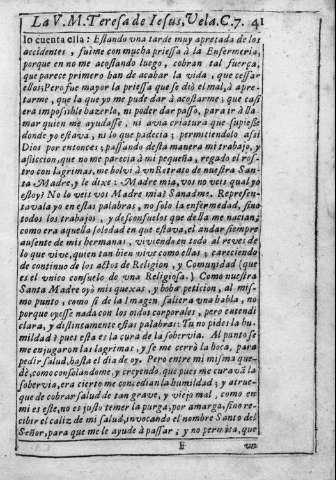 La V. M. Teresa de Iesus, Vela. C. 7. 41
lo cuenta ella: Estando vna tarde muy apretada de los
accidentes, fuime con mucha priessa à la Enfermeria,
porque en no me acostando luego, cobran tal fuerça,
que parece primero han de acabar la vida, que cessar
ellos; Pero fue mayor la priessa que se diò el mal, à apre-
tarme, que la que yo me pude dar à acostarme; que casi
era impossible hazerlo, ni poder dar passo, para ir à lla-
mar quien me ayudasse, ni avia criatura que supiesse
donde yo estava, ni lo que padecia; permitiendolo assi
Dios por entonces; passando desta manera mi trabajo, y
afliccion, que no me parecia à mi pequeña, regado el ros-
tro con lagrimas, me bolvì à vn Retrato de nuestra San-
ta Madre, y le dixe: Madre mia, vos no veis qual yo
estoy? No lo veis vos Madre mia? Sanadme. Represen-
tavala yo en estas palabras, no solo la enfermedad, sino
todos los trabajos, y desconsuelos que della me nacian;
como era aquella soledad en que estava, el andar siempre
ausente de mis hermanas, viviendo en todo al reves de
lo que vive, quien tan bien vive como ellas; careciendo
de continuo de los actos de Religion, y Comunidad (que
es el vnico consuelo de vna Religiosa.) Como nuestra
Santa Madre oyò mis quexas, y boba peticion, al mis-
mo punto, como si de la Imagen saliera vna habla, no
porque oyesse nada con los oidos corporales, pero entendi
clara, y distintamente estas palabras: Tu no pides la hu-
mildad? pues esta es la cura de la sobervia. Al punto se
me enjugaron las lagrimas, y se me cerrò la boca, para
pedir salud, hasta el dia de oy. Pero entre mi misma que-
dè, como consolandome, y creyendo, que pues me curavã la
sobervia, era cierto me concedian la humildad; y atrue-
que de cobrar salud de tan grave, y viejo mal, como en
mi es este, no es justo temer la purga, por amarga, sino re-
cibir el caliz de mi salud, invocando el nombre Santo del
Señor, para que me le ayude à passar; y no permita, que
E vn